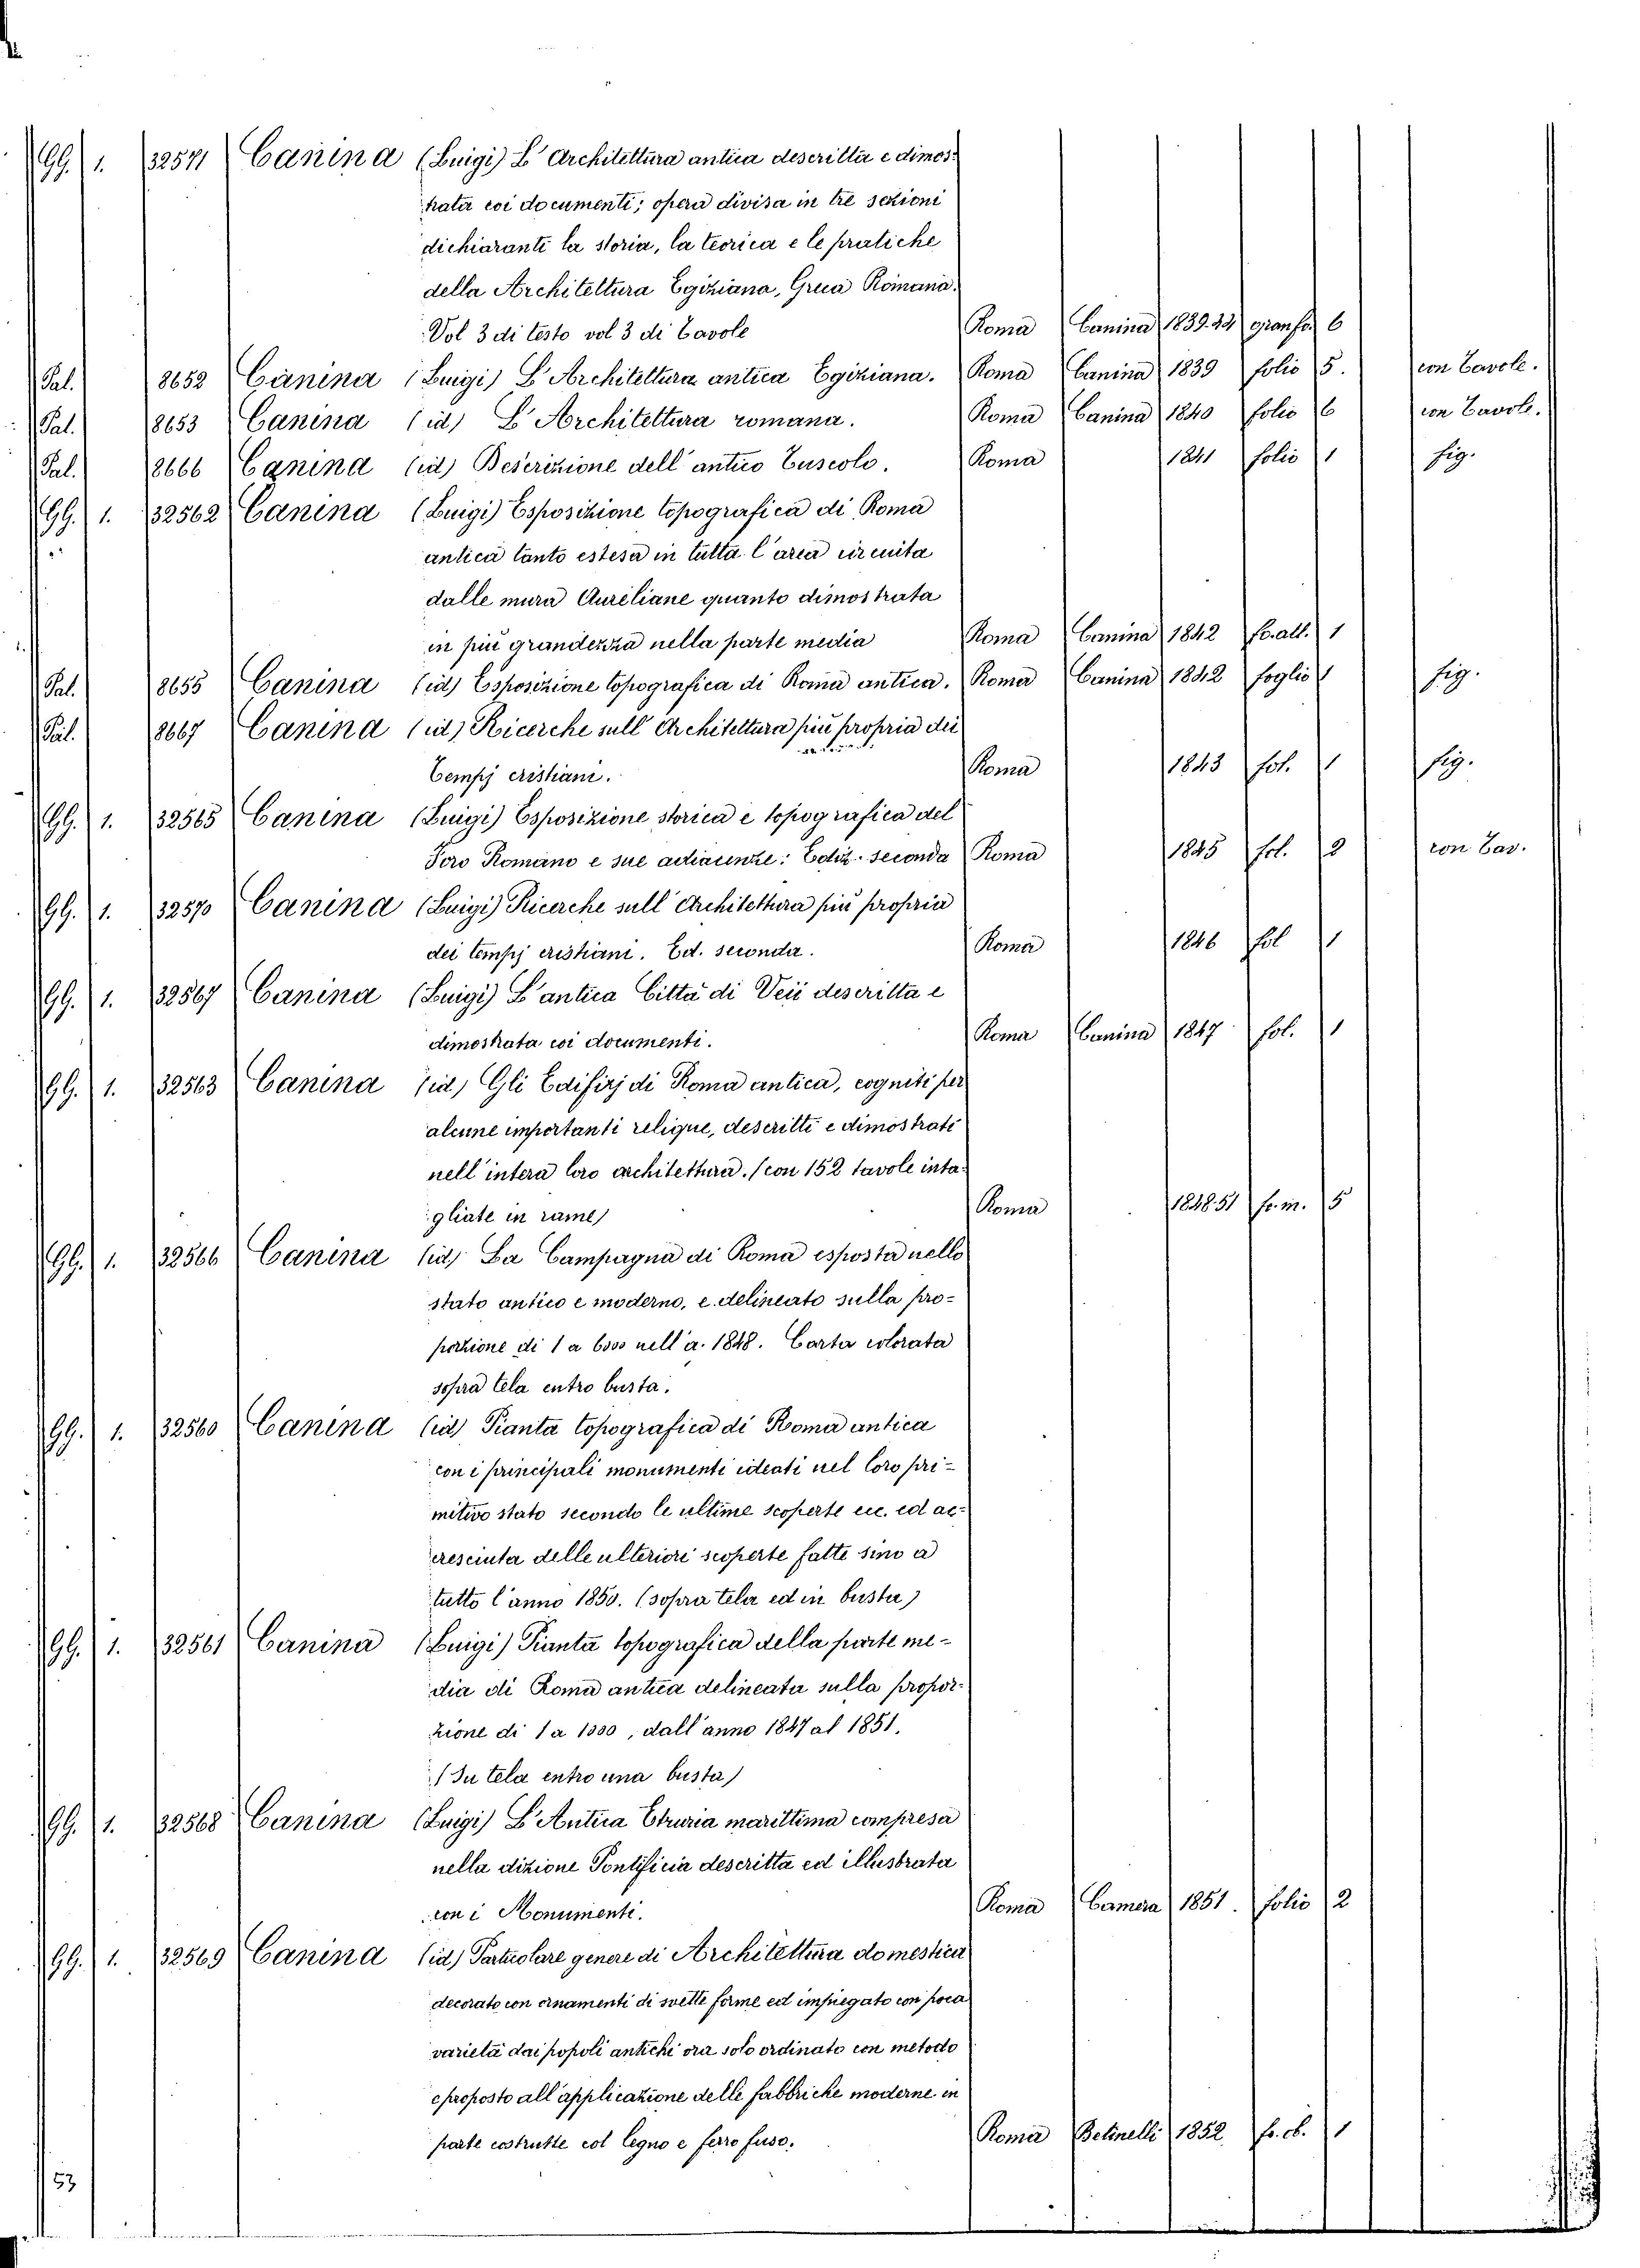 GG. 1. 32571 Canina (Luigi) L'Architettura antica descritta e dimos-
trata coi documenti; opera divisa in tre sezioni
dichiaranti la storia, la teorica e le pratiche
della Architettura Egiziana, Greca Romana.
Vol 3 di testo vol 3 di Tavole Roma Canina 1839.44 gran fo. 6
Pal. 8652 Canina (Luigi) L'Architettura antica Egiziana. Roma Canina 1839 folio 5. con Tavole.
Pal. 8653 Canina (id) L'Architettura romana. Roma Canina 1840 folio 6 con Tavole.
Pal. 8666 Canina (id) Descrizione dell'antico Tuscolo. Roma 1841 folio 1 fig.
GG. 1. 32562 Canina (Luigi) Esposizione topografica di Roma
antica tanto estesa in tutta l'area circuita
dalle mura Aureliane quanto dimostrata
in più grandezza nella parte media Roma Canina 1842 fo. atl. 1
Pal. 8655 Canina (id) Esposizione topografica di Roma antica. Roma Canina 1842 foglio 1 fig.
Pal. 8667 Canina (id) Ricerche sull'Architettura più propria dei
Tempj cristiani. Roma 1843 fol. 1 fig.
GG. 1. 32565 Canina (Luigi) Esposizione storica e topografica del
Foro Romano e sue adiacenze: Ediz. seconda Roma 1845 fol. 2 con Tav.
GG. 1. 32570 Canina (Luigi) Ricerche sull'Architettura più propria
dei tempj cristiani. Ed. seconda. Roma 1846 fol 1
GG. 1. 32567 Canina (Luigi) L'antica Città di Veii descritta e
dimostrata coi documenti. Roma Canina 1847 fol. 1
GG. 1. 32563 Canina (id) Gli Edifizj di Roma antica, cogniti per
alcune importanti relique, descritti e dimostrati
nell'intera loro architettura. (con 152 tavole inta-
gliate in rame) Roma 1848.51 fo. m. 5
GG. 1. 32566 Canina (id) La Campagna di Roma esposta nello
stato antico e moderno, e delineato sulla pro-
porzione di 1 a 6000 nell'a. 1848. Carta colorata
sopra tela entro busta.
GG. 1. 32560 Canina (id) Pianta topografica di Roma antica
con i principali monumenti ideati nel loro pri-
mitivo stato secondo le ultime scoperte ecc. ed ac-
cresciuta delle ulteriori scoperte fatte sino a
tutto l'anno 1850. (sopra tela ed in busta)
GG. 1. 32561 Canina (Luigi) Pianta topografica della parte me-
dia di Roma antica delineata sulla propor-
zione di 1 a 1000, dall'anno 1847 al 1851.
(In tela entro una busta)
GG. 1. 32568 Canina (Luigi) L'Antica Etruria marittima compresa
nella dizione Pontificia descritta ed illustrata
con i Monumenti. Roma Camera 1851. folio 2
GG. 1. 32569 Canina (id) Particolare genere di Architettura domestica
decorato con ornamenti di svelte forme ed impiegato con poca
varietà dai popoli antichi ora solo ordinato con metodo
e proposto all'applicazione delle fabbriche moderne in
parte costrutte col legno e ferro fuso. Roma Betinelli 1852 1
53